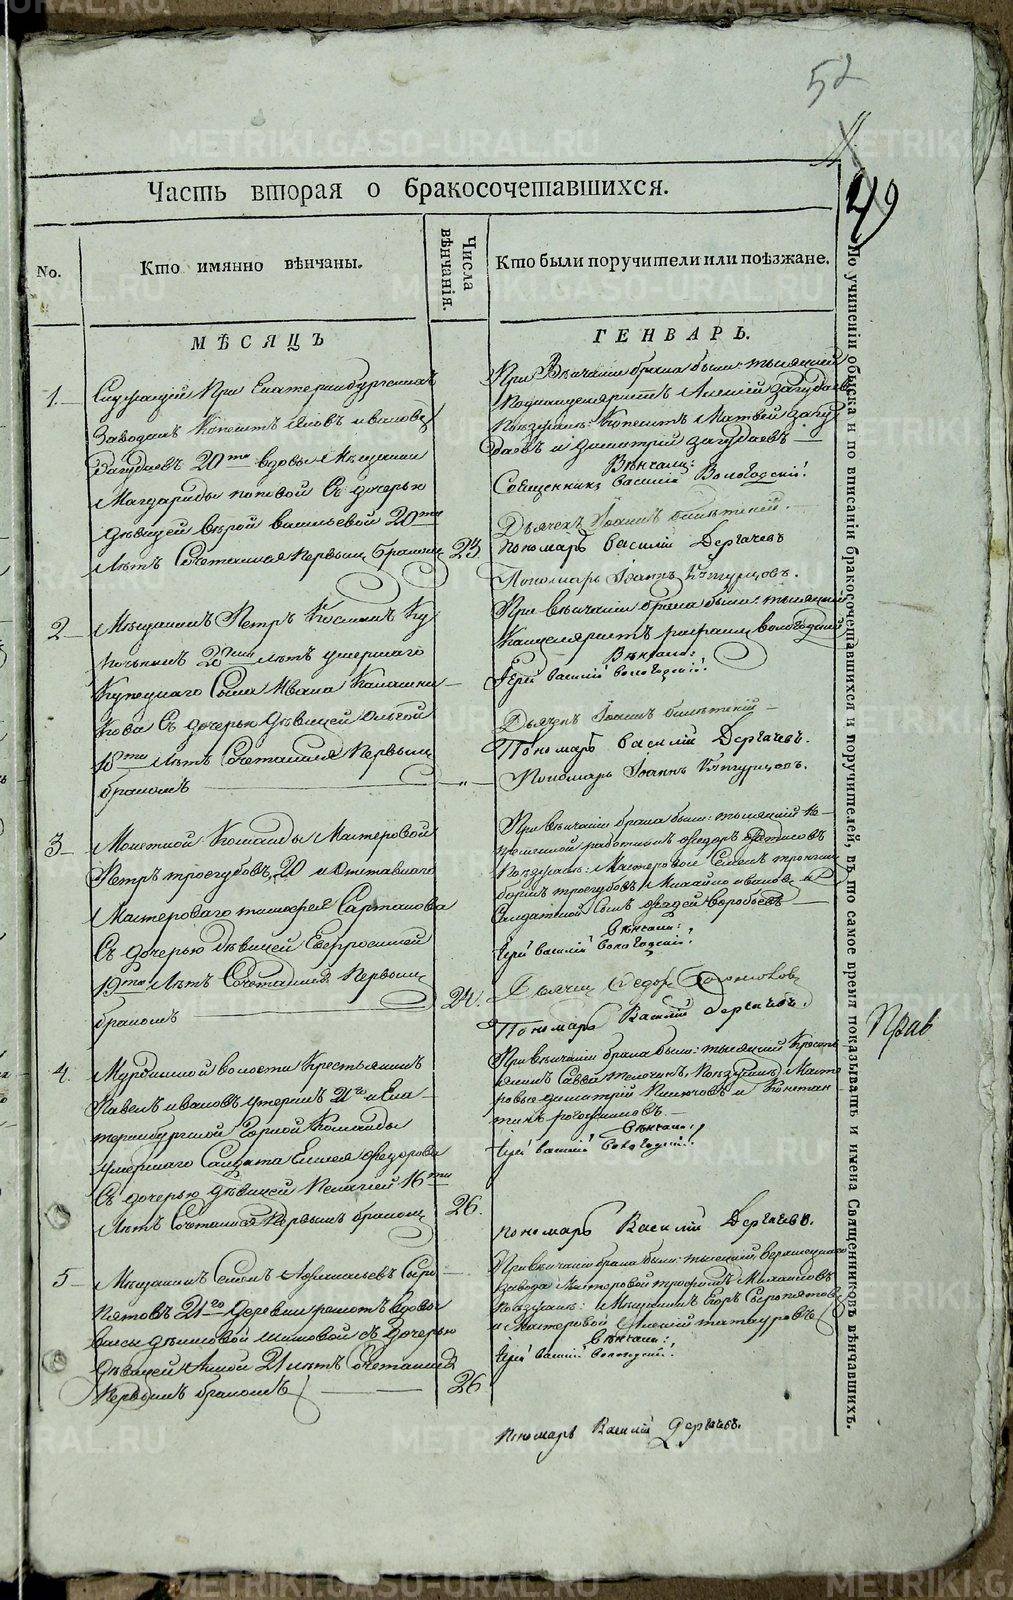 52
49
Часть вторая о бракосочетавшихся.
No.
Кто имянно вѣнчаны.
Числа вѣнчанія.
Кто были поручители или поѣзжане.
МѢСЯЦЪ
ГЕНВАРЬ.
1.
Служащій При Екатеринбургскихъ
Заводахъ Копеистъ Яковъ Ивановъ
Загудаевъ 20ти вдовы Мѣщанки
поповой Съ дочерью
дѣвицей Вѣрой Васильевой 20ти
Лѣтъ Сочетались Первымъ бракомъ
23.
При Вѣнчаніи брака были: тысяцкой
Подканцеляристъ Алексій Загудаевъ
Поѣзжане: Копеистъ Матвей Загу
даевъ и Димитрій Загудаевъ
Вѣнчали:
Священникъ Василій Вологодскій.
Дьячекъ Іоаннъ
Пономарь Василій Дергачевъ
Пономарь Іоаннъ
2
Мѣщанинъ Петръ Косминъ
20 Лѣтъ умершаго
Купецкаго Сына Ивана Калашни
кова Съ дочерью дѣвицей Ольгой
18ти Лѣтъ Сочетались Первымъ
бракомъ
„
При вѣнчаніи брака были: тысяцкій
Канцеляристъ Вологодскій
Вѣнчали:
Іерей Василій Вологодскій.
Дьячекъ Іоаннъ
Пономарь Василій Дергачевъ.
Пономарь Іоаннъ
3
Монетной Команды Мастеровой
Петръ Троегубовъ 20 и отставнаго
Мастероваго Тимофея Сартакова
Съ дочерью дѣвицей Евфросиніей
19ти Лѣтъ Сочетались Первымъ
бракомъ
24.
При вѣнчаніи брака были: тысяцкій
работникъ Федоръ
Поѣзжане: Мастеровой Семенъ
Троегубовъ Михайло Ивановъ и
Салдатской Сынъ Фадей Воробьевъ
Вѣнчали:
Іерей Василій Вологодскій.
Дьячекъ Федоръ
Пономарь Василій Дергачевъ.
4.
волости Крестьянинъ
Павелъ Ивановъ 21го и Ека
теринбургской Горной Команды
умершаго Салдата Елисея Федорова
Съ дочерью дѣвицей Пелагіей 16ти
Лѣтъ Сочетались Первымъ бракомъ
26.
При вѣнчаніи брака были: тысяцкій Кресть
янинъ Савва Поѣзжане: Масте
ровые Димитрій и Констан
тинъ
Вѣнчали:
Іерей Василій Вологодскій.
Пономарь Василій Дергачевъ.
5
Мѣщанинъ Семенъ Афанасьевъ Сыро
пятовъ 21го деревни вдовы
Шиловой Съ дочерью
дѣвицей Анной 21 лѣтъ Сочетались
Первымъ бракомъ
26
При вѣнчаніи брака были: тысяцкій Верхисецкаго
завода Мастеровой Трофимъ Михайловъ
поѣзжане: Мѣщанинъ Егоръ Сыропятовъ
и Мастеровой Алексій Татауровъ
Вѣнчали:
Іерей Василій Вологодскій.
Пономарь Василій Дергачевъ.
По учиненіи обыска и по вписаніи бракосочетавшихся и поручителей, въ то самое время показывать и имена Священниковъ вѣнчавшихъ.
Прав
METRIKI.GASO-URAL.RU